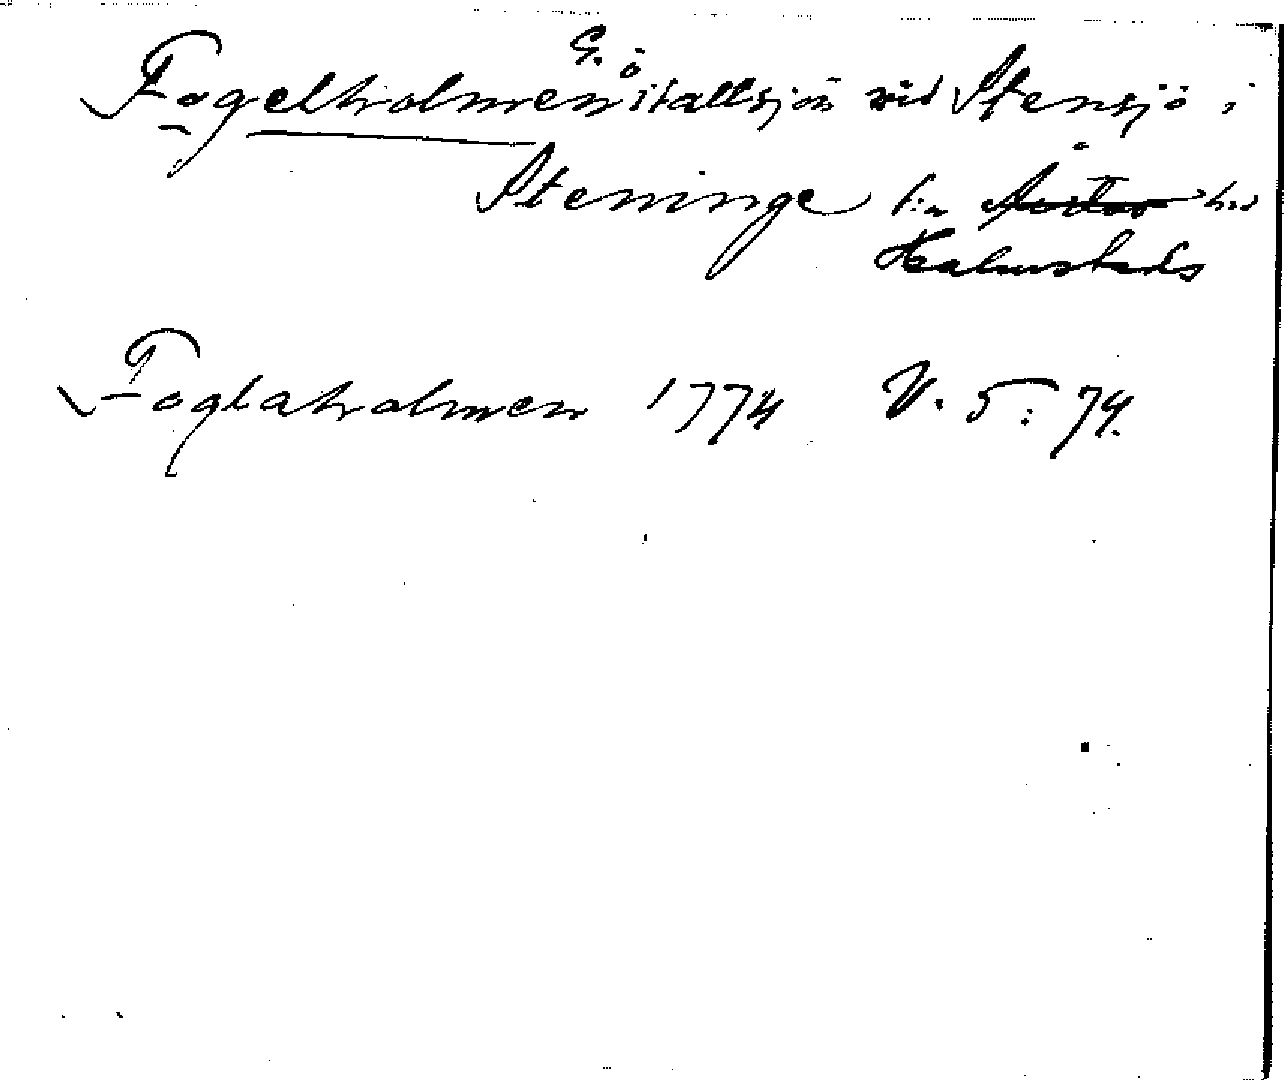 G. ö
Fogelholmen i tallsjön vid Stensjö i
Steninge s:n hd
Halmstads
Foglaholmen 1774 V. 5: 74.